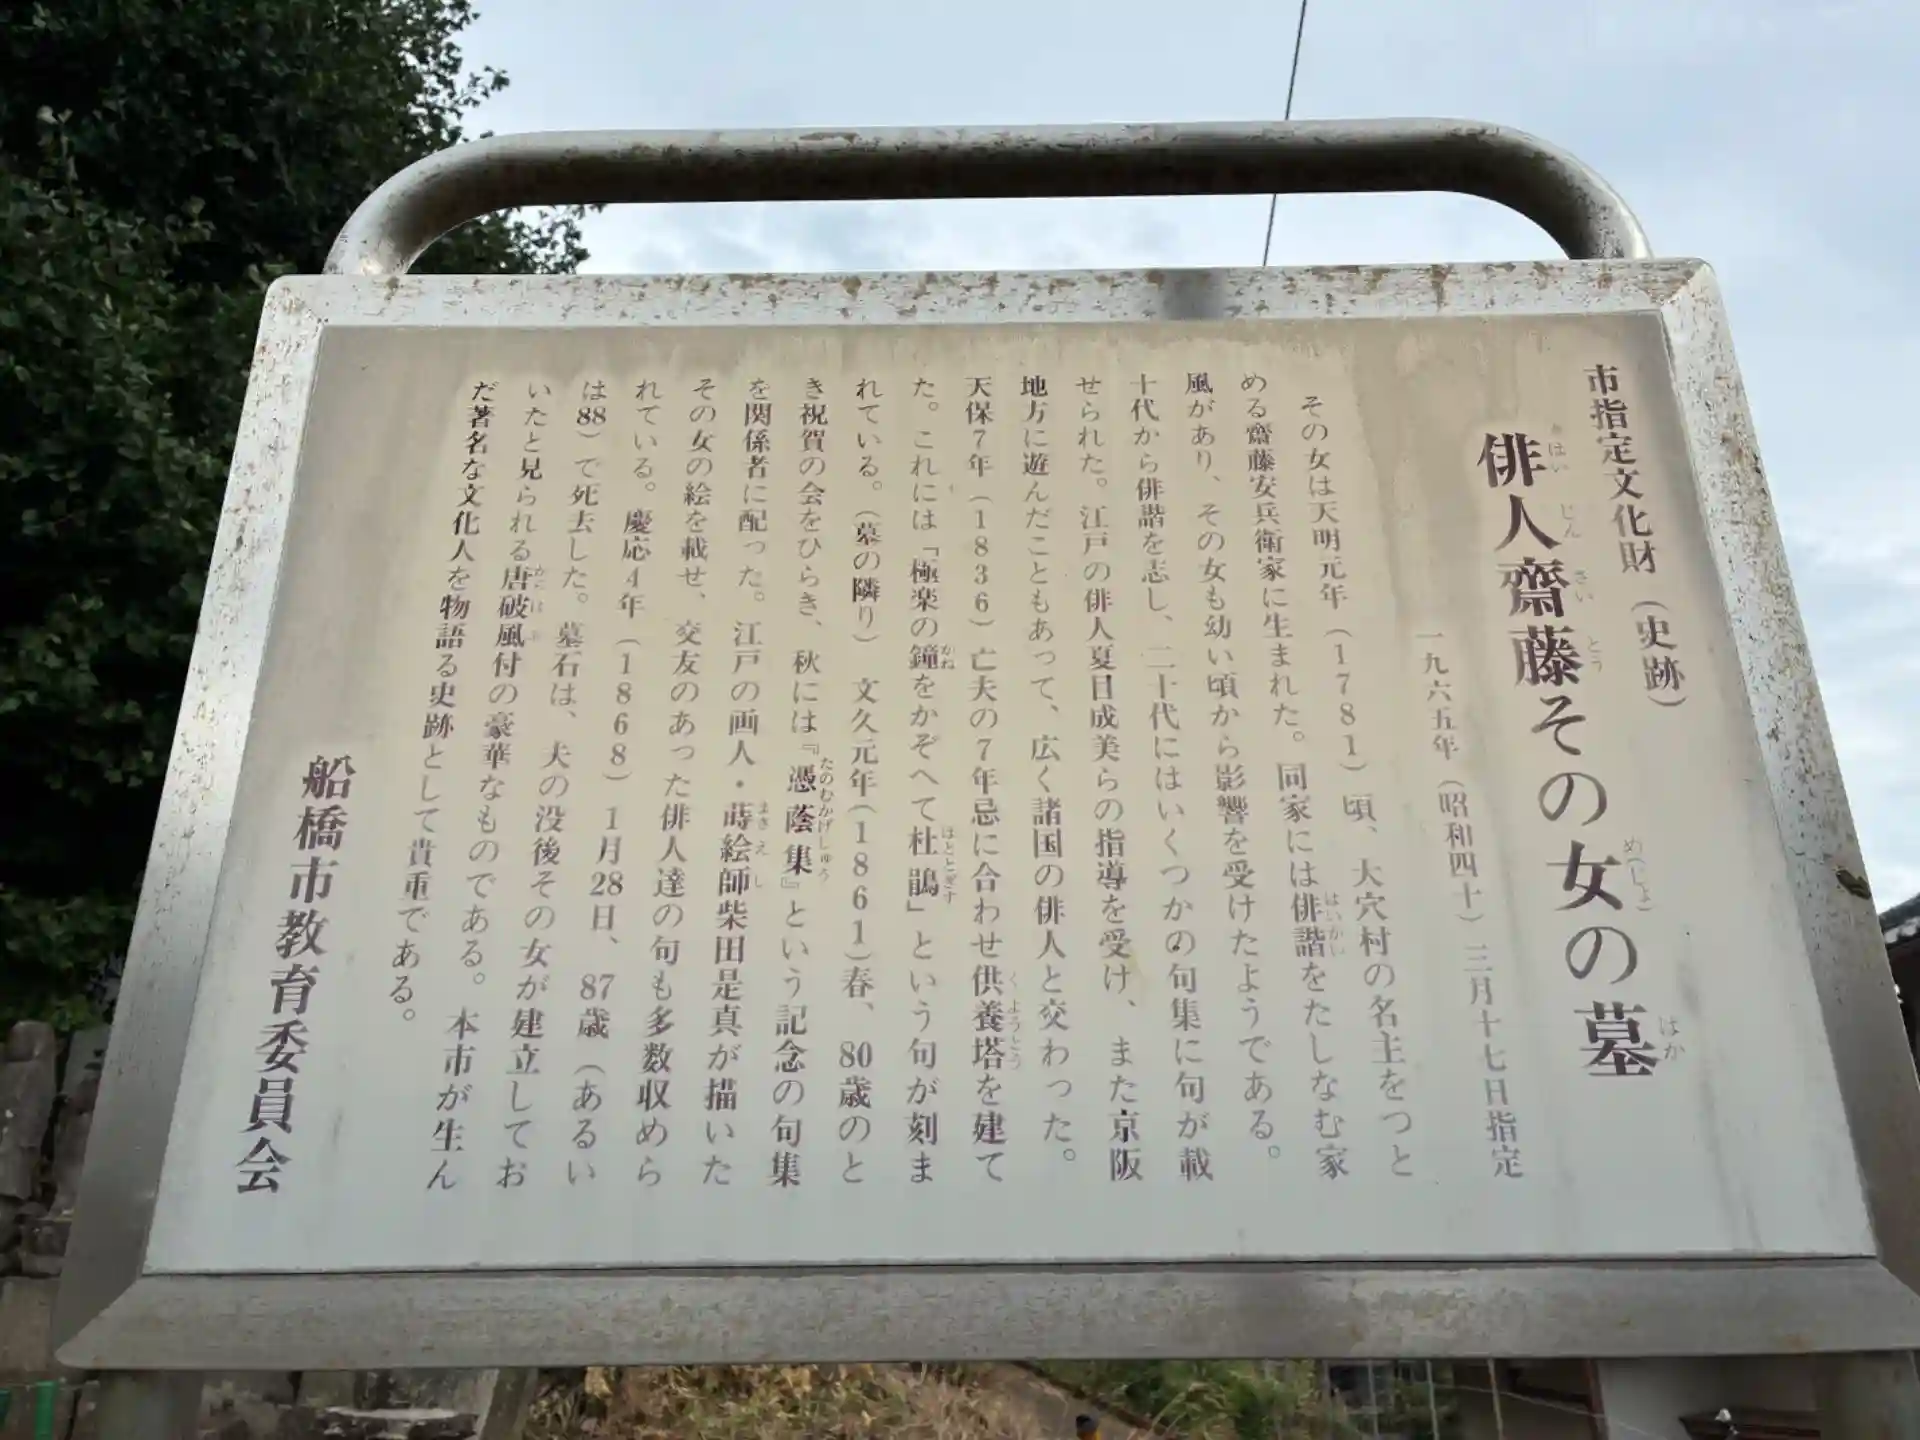 市指定文化財（史跡）
俳人齋藤その女の墓
一九六五年（昭和四十）三月十七日指定
その女は天明元年（1781）頃、大穴村の名主をつと
める齋藤安兵衛家に生まれた。同家には俳諧をたしなむ家
風があり、その女も幼い頃から影響を受けたようである。
十代から俳諧を志し、二十代にはいくつかの句集に句が載
せられた。江戸の俳人夏目成美らの指導を受け、また京阪
地方に遊んだこともあって、広く諸国の俳人と交わった。
天保7年（1836）亡夫の7年忌に合わせ供養塔を建て
た。これには「極楽の鐘をかぞへて杜鵑」という句が刻ま
れている。（墓の隣り）　文久元年（1861）春、80歳のと
き祝賀の会をひらき、秋には『憑蔭集』という記念の句集
を関係者に配った。江戸の画人・蒔絵師柴田是真が描いた
その女の絵を載せ、交友のあった俳人達の句も多数収めら
れている。慶応4年（1868）1月28日、87歳（あるい
は88）で死去した。墓石は、夫の没後その女が建立してお
いたと見られる唐破風付の豪華なものである。本市が生ん
だ著名な文化人を物語る史跡として貴重である。
船橋市教育委員会